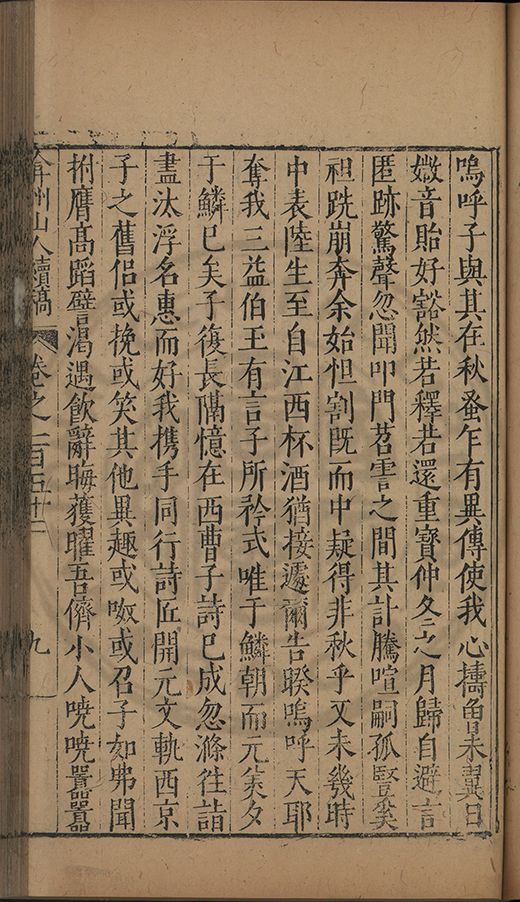 嗚呼子與其在秋蚤乍有異傳使我心擣翼日
媺音貽好豁然若釋若還重寶仲冬之月歸自避言
匿跡驚聲忽聞叩門苕霅之間其計騰喧嗣孤豎奚
袒跣崩奔余始怛割既而中疑得非秋乎又未幾時
中表陸生至自江西杯酒猶接遽爾告暌嗚呼天耶
奪我三益伯玉有言子所矜式唯于鱗朝而元美夕
于鱗已矣子復長隔憶在西曹子詩已成忽滌往詣
盡汰浮名惠而好我携手同行詩匠開元文軌西京
子之舊侶或挽或笑其他異趣或呶或召子如弗聞
拊膺高蹈譬渴遇飲辭晦獲曜吾儕小人嘵嘵囂囂
弇州山人續稿 卷之一百五十二 九